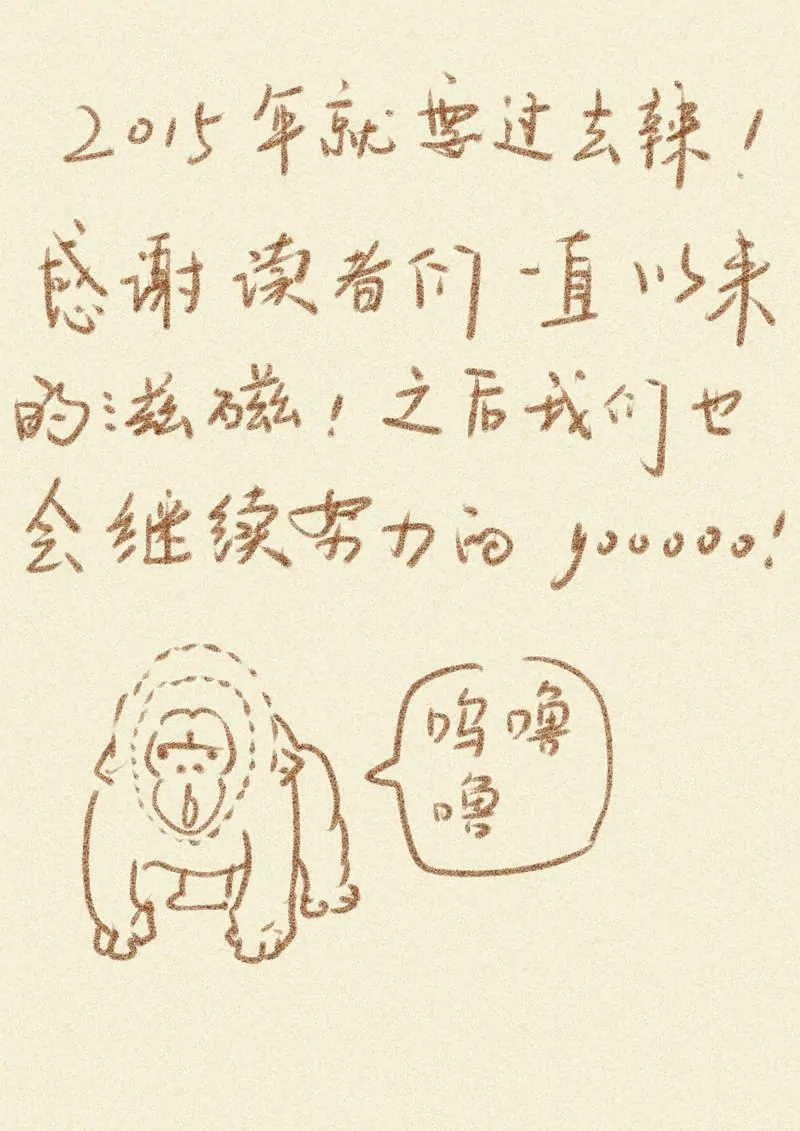 2015年就要过去辣!
感谢读者们一直以来
的滋磁!之后我们也
会继续努力的yooooo!
呜噜
噜